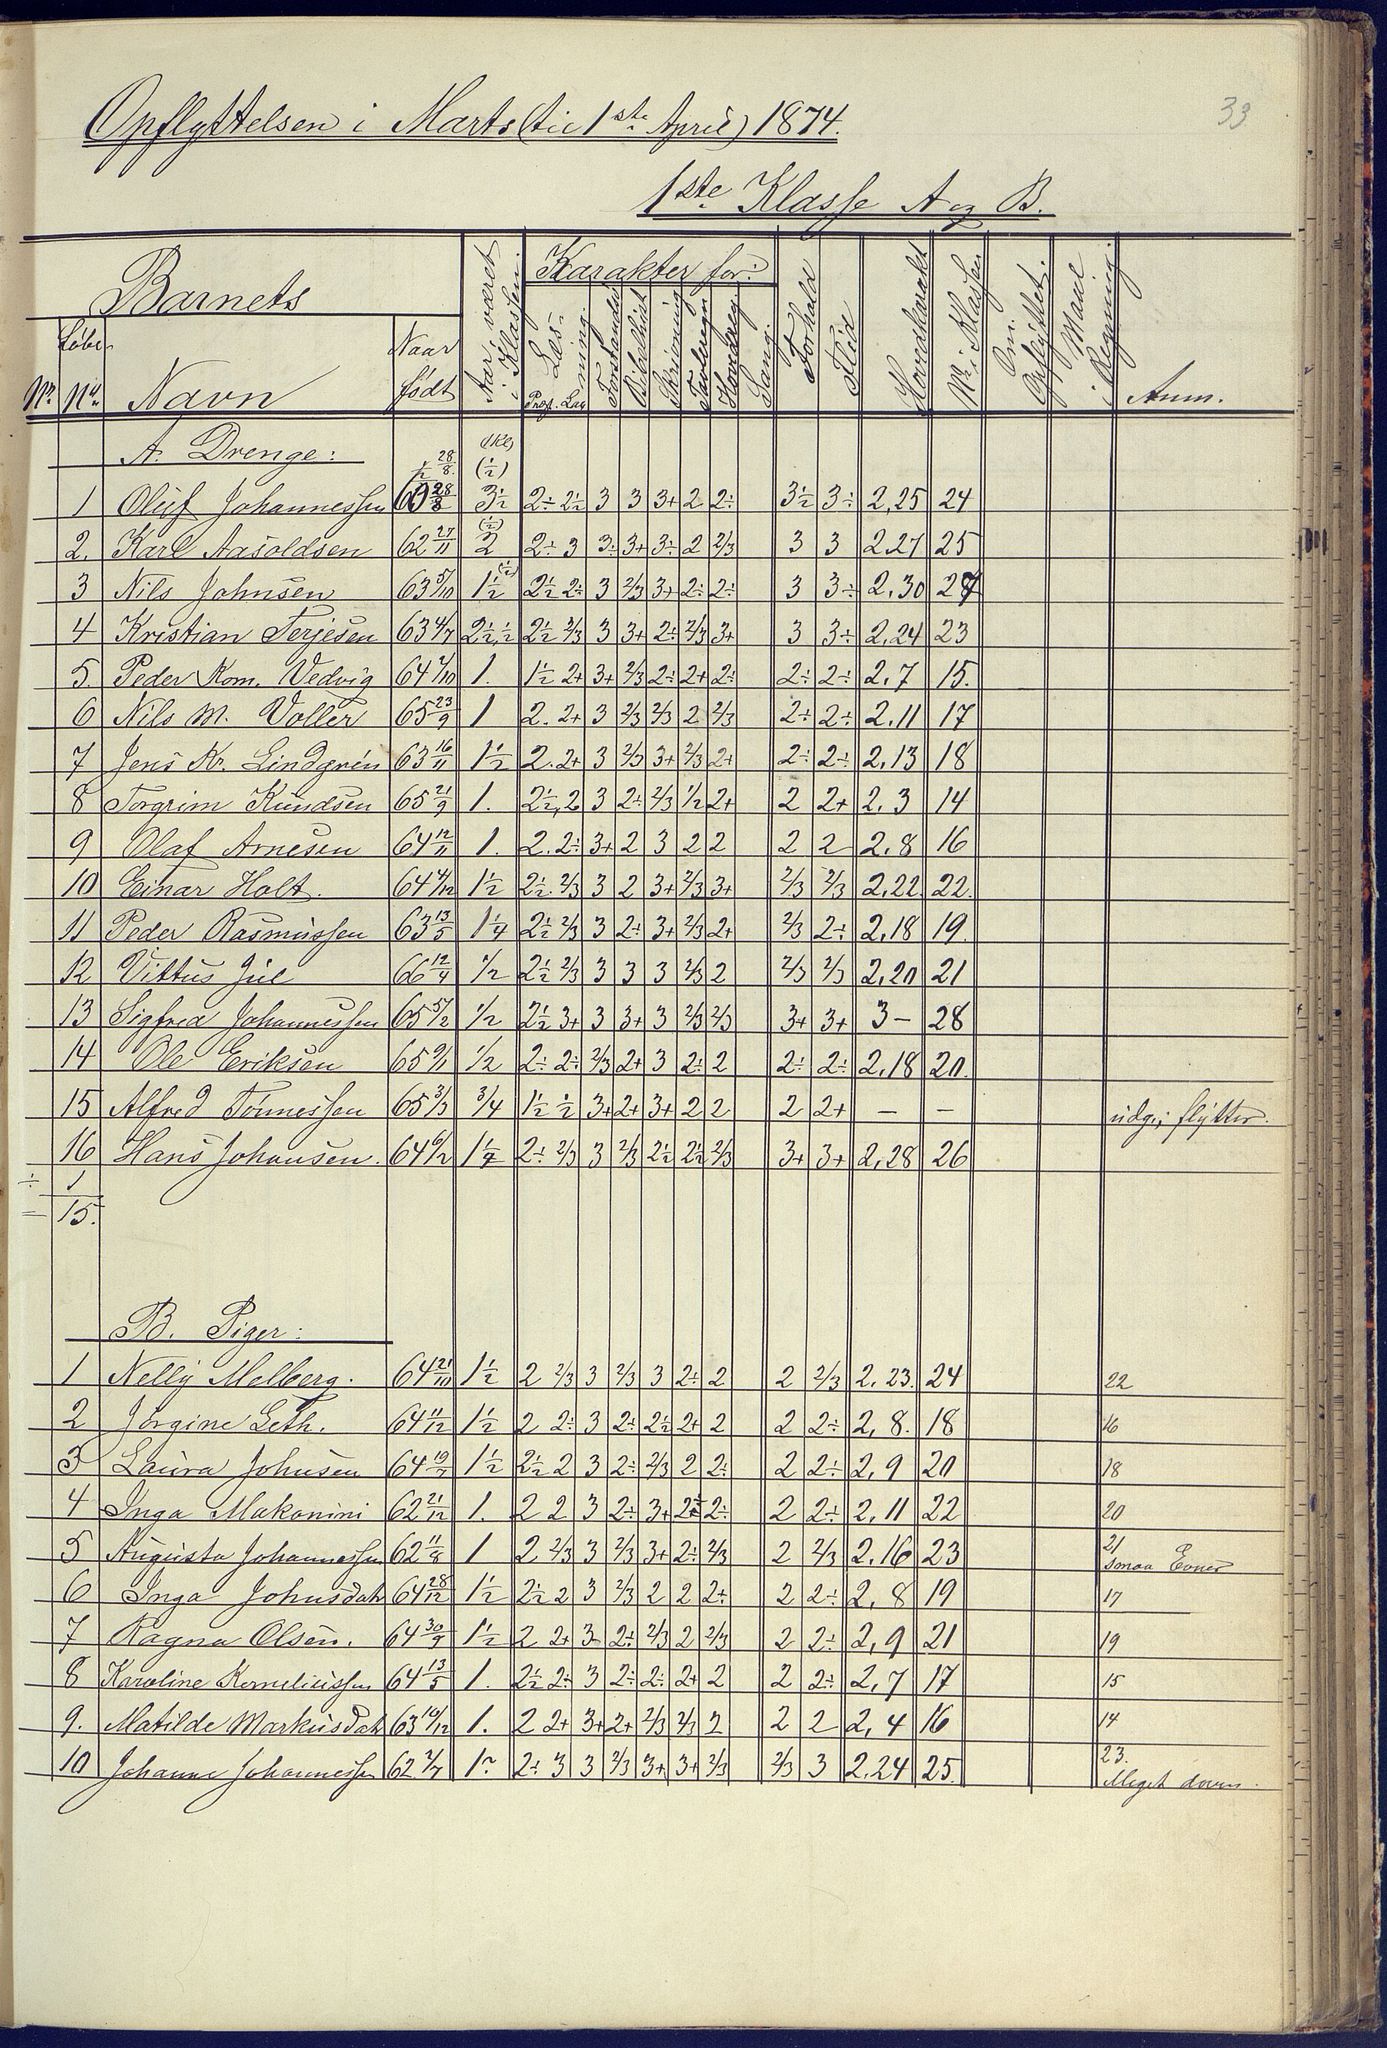 33
Opflyttelsen i Marts (til 1ste April) 1874.
1ste Klasse A og B.
Barnets
Karakter for:
Aar været i Klassen.
Forhold
Flid
Hovedkarakt
No i Klassen
Om Opflyttet.
i Regning.
Nr.
Løbe Nr.
Navn
Naar født
Læsning.
Forstandsø
Bibelhist
Skrivning
Tavleregn
Hovedreg
Sang.
Anm.
A. Drenge:
1 Oluf Johannessen 28/8 3½ 2÷ 2½ 3 3 3+ 2 2÷ 3½ 3÷ 2,25 24
2. Karl Aasoldsen 62 27/11 2 (½) 2÷ 3 3÷ 3+ 3÷ 2 2/3 3 3 2,27 25
3 Nils Johnsen 63 5/10 1½ (½) 2½ 2÷ 3 2/3 3+ 2÷ 2÷ 3 3÷ 2,30 27
4 Kristian Terjesen 63 4/7 2½,½ 2½ 2/3 3 3+ 2÷ 2/3 3+ 3 3÷ 2,24 23
5 Peder Rom. Vedvig 64 4/10 1. 1½ 2+ 3+ 2/3 2÷ 2+ 2÷ 2÷ 2÷ 2,7 15.
6 Nils M. Voller 65 23/9 1 2. 2+ 3 2/3 2/3 2 2/3 2÷ 2÷ 2,11 17
7 Jens Kr. Lindgren 63 16/11 1½ 2. 2+ 3 2/3 3+ 2/3 2+ 2÷ 2÷ 2,13 18
8 Torgrim Knudsen 65 21/9 1. 2½, 2 3 2÷ 2/3 ½ 2+ 2 2+ 2,3 14
9 Olaf Arnesen 64 12/11 1. 2. 2÷ 3+ 2 3 2 2 2 2 2,8 16
10 Einar Holt. 64 4/12 1½ 2½. 2/3 3 2 3+ 2/3 3+ 2/3 2/3 2,22 22.
11 Peder Rasmussen 63 13/5 1¼ 2½ 2/3 3 2÷ 3+ 2/3 2+ 2/3 2÷ 2,18 19.
12 Vittus Jul 66 12/4 ½ 2½ 2/3 3 3 3 2/3 2 2/3 2/3 2,20 21
13 Sigfred Johannessen 65 5/2 ½ 2½ 3+ 3 3+ 3 2/3 2/3 3+ 3+ 3– 28
14 Ole Eriksen 65 ½ 2÷ 2÷ 2/3 2+ 3 2÷ 2 2÷ 2÷ 2,18 20.
15 Alfred Tønnessen 65 3/3 ¾ 1½ ½ 3+ 2+ 3+ 2 2 2 2+ – – udg.; flytter.
16 Hans Johansen. 64 6/2 1¼ 2÷ 2/3 3 2/3 2½ 2½ 2/3 3+ 3+ 2,28 26
÷ 1
= 15.
B. Piger:
1 Nelly Melberg. 64 21/10 1½ 2 2/3 3 2/3 3 2÷ 2 2 2/3 2,23. 24 22
2 Jørgine Leth. 64 11/12 1½ 2 2÷ 3 2÷ 2½ 2+ 2 2 2÷ 2,8. 18 16
3 Laura Johnsen 64 19/7 1½ 2½ 2 3 2÷ 2/3 2 2÷ 2 2÷ 2,9 20 18
4 Inga Makonini 62 21/12 1. 2 2 3 2÷ 3+ 2÷ 2÷ 2 2÷ 2,11 22 20
5 Augusta Johannessen 62 11/8 1 2 2/3 3 2/3 3+ 2÷ 2/3 2 2/3 2,16 23 21
smaa Evner
6 Inga Johnsdatr 64 28/12 1½ 2½ 2 3 2/3 2 2 2+ 2 2÷ 2,8 19 17
7 Ragna Olsen. 64 30/9 1½ 2 2+ 3 2÷ 2/3 2 2/3 2 2÷ 2,9 21 19
8 Karoline Korneliussen 64 13/5 1. 2½ 2÷ 3 2÷ 2÷ 2+ 2 2 2÷ 2,7 17 15
9. Matilde Markusdatr 63 19/12 1. 2 2+ 3+ 2+ 2/3 2/3 2 2 2 2,4 16 14
10 Johanne Johannessen 62 2/7 1 2÷ 3 3 2/3 3+ 3+ 2/3 2/3 3 2,24 25. 23.
Meget doven.